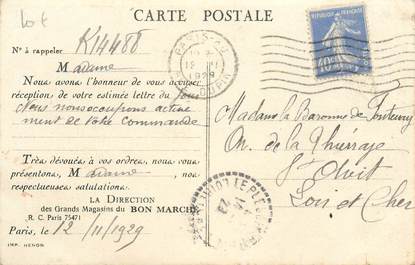 10 €
CARTE POSTALE
N° à rappeler K14488
Madame
Nous avons l'honneur de vous accuser
réception de votre estimée lettre du jour
Nous nous occupons active
ment de votre commande
Très dévoués à vos ordres, nous vous
présentons, Madame, nos
respectueuses salutations.
LA DIRECTION
des Grands Magasins du BON MARCHÉ
R. C. Paris 75471
Paris, le 12/11/1929
IMP. HENON
PARIS
1929
R. DUPIN
REPUBLIQUE FRANÇAISE
40c
Madame la Baronne de
de la
St Avit
Loir et Cher